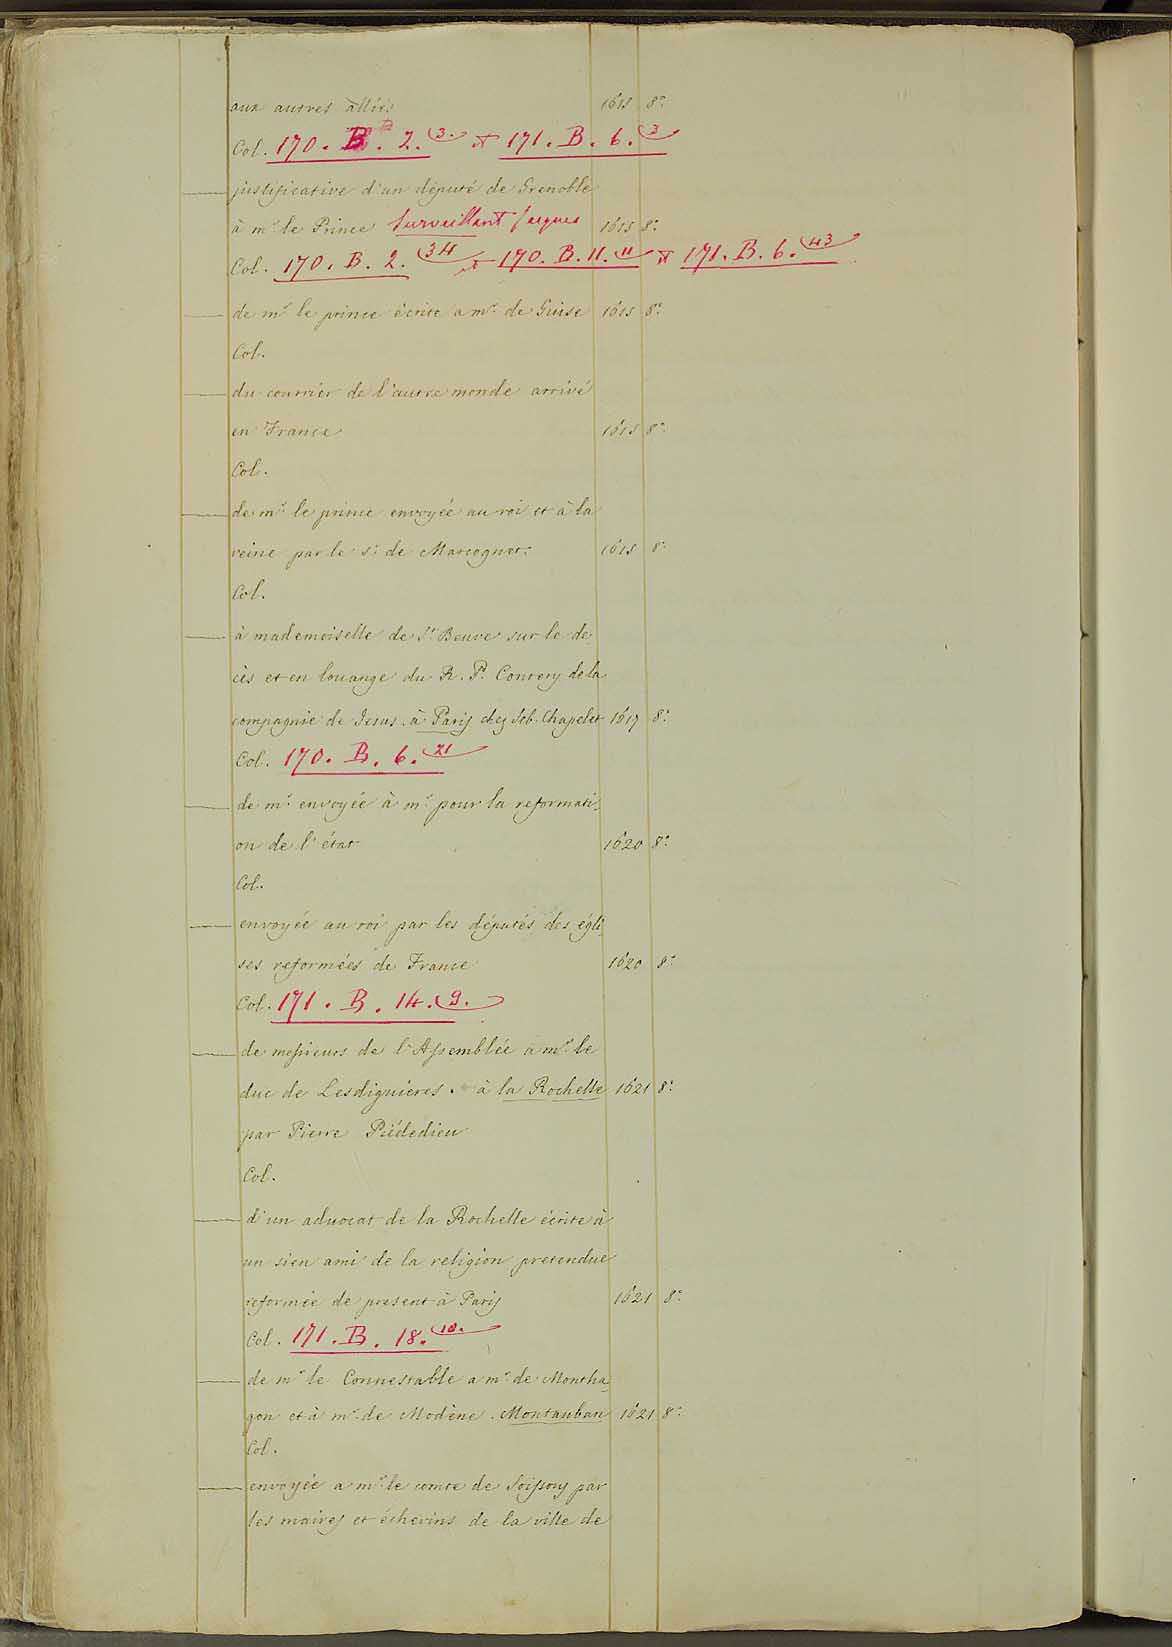 aux autres alliés 1615 8°.
Col. 170. B. 2. 3. et 171. B. 6. 3
— justificative d'un député de Grenoble
à mr. le Prince Surveillant Jacques 1615 8°.
Col. 170. B. 2. 34 et 170. B. 11. 11 et 171. B. 6. 43
— de mr. le prince écrite a mr. de Guise 1615 8°.
Col.
— du courrier de l'autre monde arrivé
en France 1615 8°.
Col.
— de mr. le prince envoyée au roi et à la
reine par le sr. de Marcognet. 1615 8°.
Col.
— à mademoiselle de St. Beuve sur le de_
cès et en louange du R. P. Contery de la
compagnie de Jesus. à Paris chez Seb. Chapelet 1617 8°.
Col. 170. B. 6. 21
— de mr. envoyée à mr. pour la reformati_
on de l'état 1620 8°.
Col.
— envoyée au roi par les députés des égli_
ses reformées de France 1620 8°.
Col. 171. B. 14. 9.
— de messieurs de l'Assemblée a mr. le
duc de Lesdiguieres. à la Rochelle 1621 8°.
par Pierre Piédedieu
Col.
— d'un advocat de la Rochelle écrite à
un sien ami de la religion pretendue
reformée de present à Paris 1621 8°.
Col. 171. B. 18. 10.
— de mr. le Connestable a mr. de Montba_
zon et à mr. de Modène. Montauban 1621 8°.
Col.
— envoyée a mr. le comte de Soissons par
les maires et échevins de la ville de